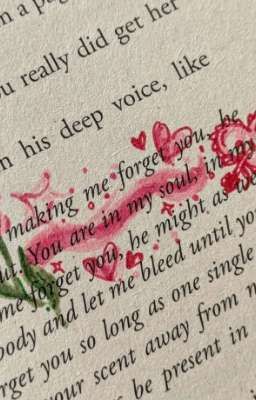 n a p
u really did get her
n his deep voice, like
making me forget you, be
ut. You are in my soul, in my
me forget you, he might as we
body and let me bleed until yo
rget you so long as one single
your scent away from
be present in